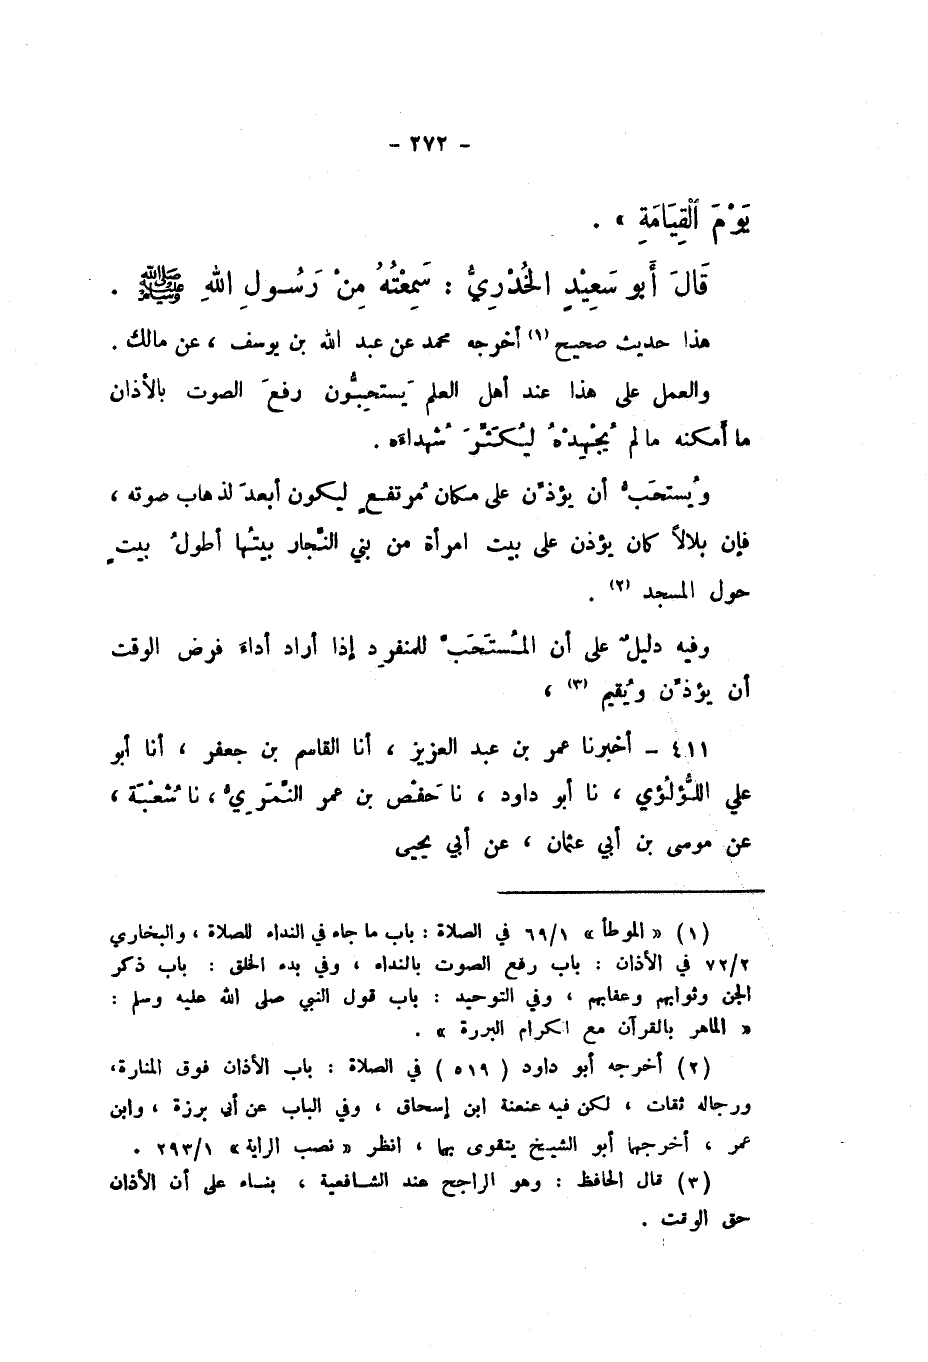 - ٢٧٢ -
يَوْمَ ٱلْقِيَامَةِ » .
قَالَ أَبو سَعِيْدٍ الخُدْرِيُّ : سَمِعْتُهُ مِنْ رَسُولِ اللهِ ﷺ .
هذا حديث صحيح (١) أخرجه محمد عن عبد الله بن يوسف ، عن مالك .
والعمل على هذا عند أهل العلم يَستحِبُّون رفعَ الصوت بالأذان
ما أمكنه ما لم يُجْهِدْهُ لِيُكَثِّرَ شُهداءَه .
ويُستحَبُّ أن يؤذّن على مكان مُرتفعٍ ليكون أبعدَ لذهاب صوته ،
فإن بلالاً كان يؤذن على بيت امرأة من بني النَّجار بيتُها أطولُ بيتٍ
حول المسجد (٢) .
وفيه دليلٌ على أن المُستَحَبَّ للمنفرِد إذا أراد أداءَ فرض الوقت
أن يؤذّن ويُقيم (٣) ،
٤١١ – أخبرنا عمر بن عبد العزيز ، أنا القاسم بن جعفر ، أنا أبو
علي اللُّؤلُؤي ، نا أبو داود ، نا حَفْص بن عمر النَّمَرِيُّ ، نا شُعْبَة ،
عن موسى بن أبي عثمان ، عن أبي يحيى
(١) « الموطأ » ٦٩/١ في الصلاة : باب ما جاء في النداء للصلاة ، والبخاري
٧٢/٢ في الأذان : باب رفع الصوت بالنداء ، وفي بدء الخلق : باب ذكر
الجن وثوابهم وعقابهم ، وفي التوحيد : باب قول النبي صلى الله عليه وسلم :
« الماهر بالقرآن مع الكرام البررة » .
(٢) أخرجه أبو داود ( ٥١٩ ) في الصلاة : باب الأذان فوق المنارة،
ورجاله ثقات ، لكن فيه عنعنة ابن إسحاق ، وفي الباب عن أبي برزة ، وابن
عمر ، أخرجها أبو الشيخ يتقوى بها ، انظر « نصب الراية » ٢٩٣/١ .
(٣) قال الحافظ : وهو الراجح عند الشافعية ، بناء على أن الأذان
حق الوقت .